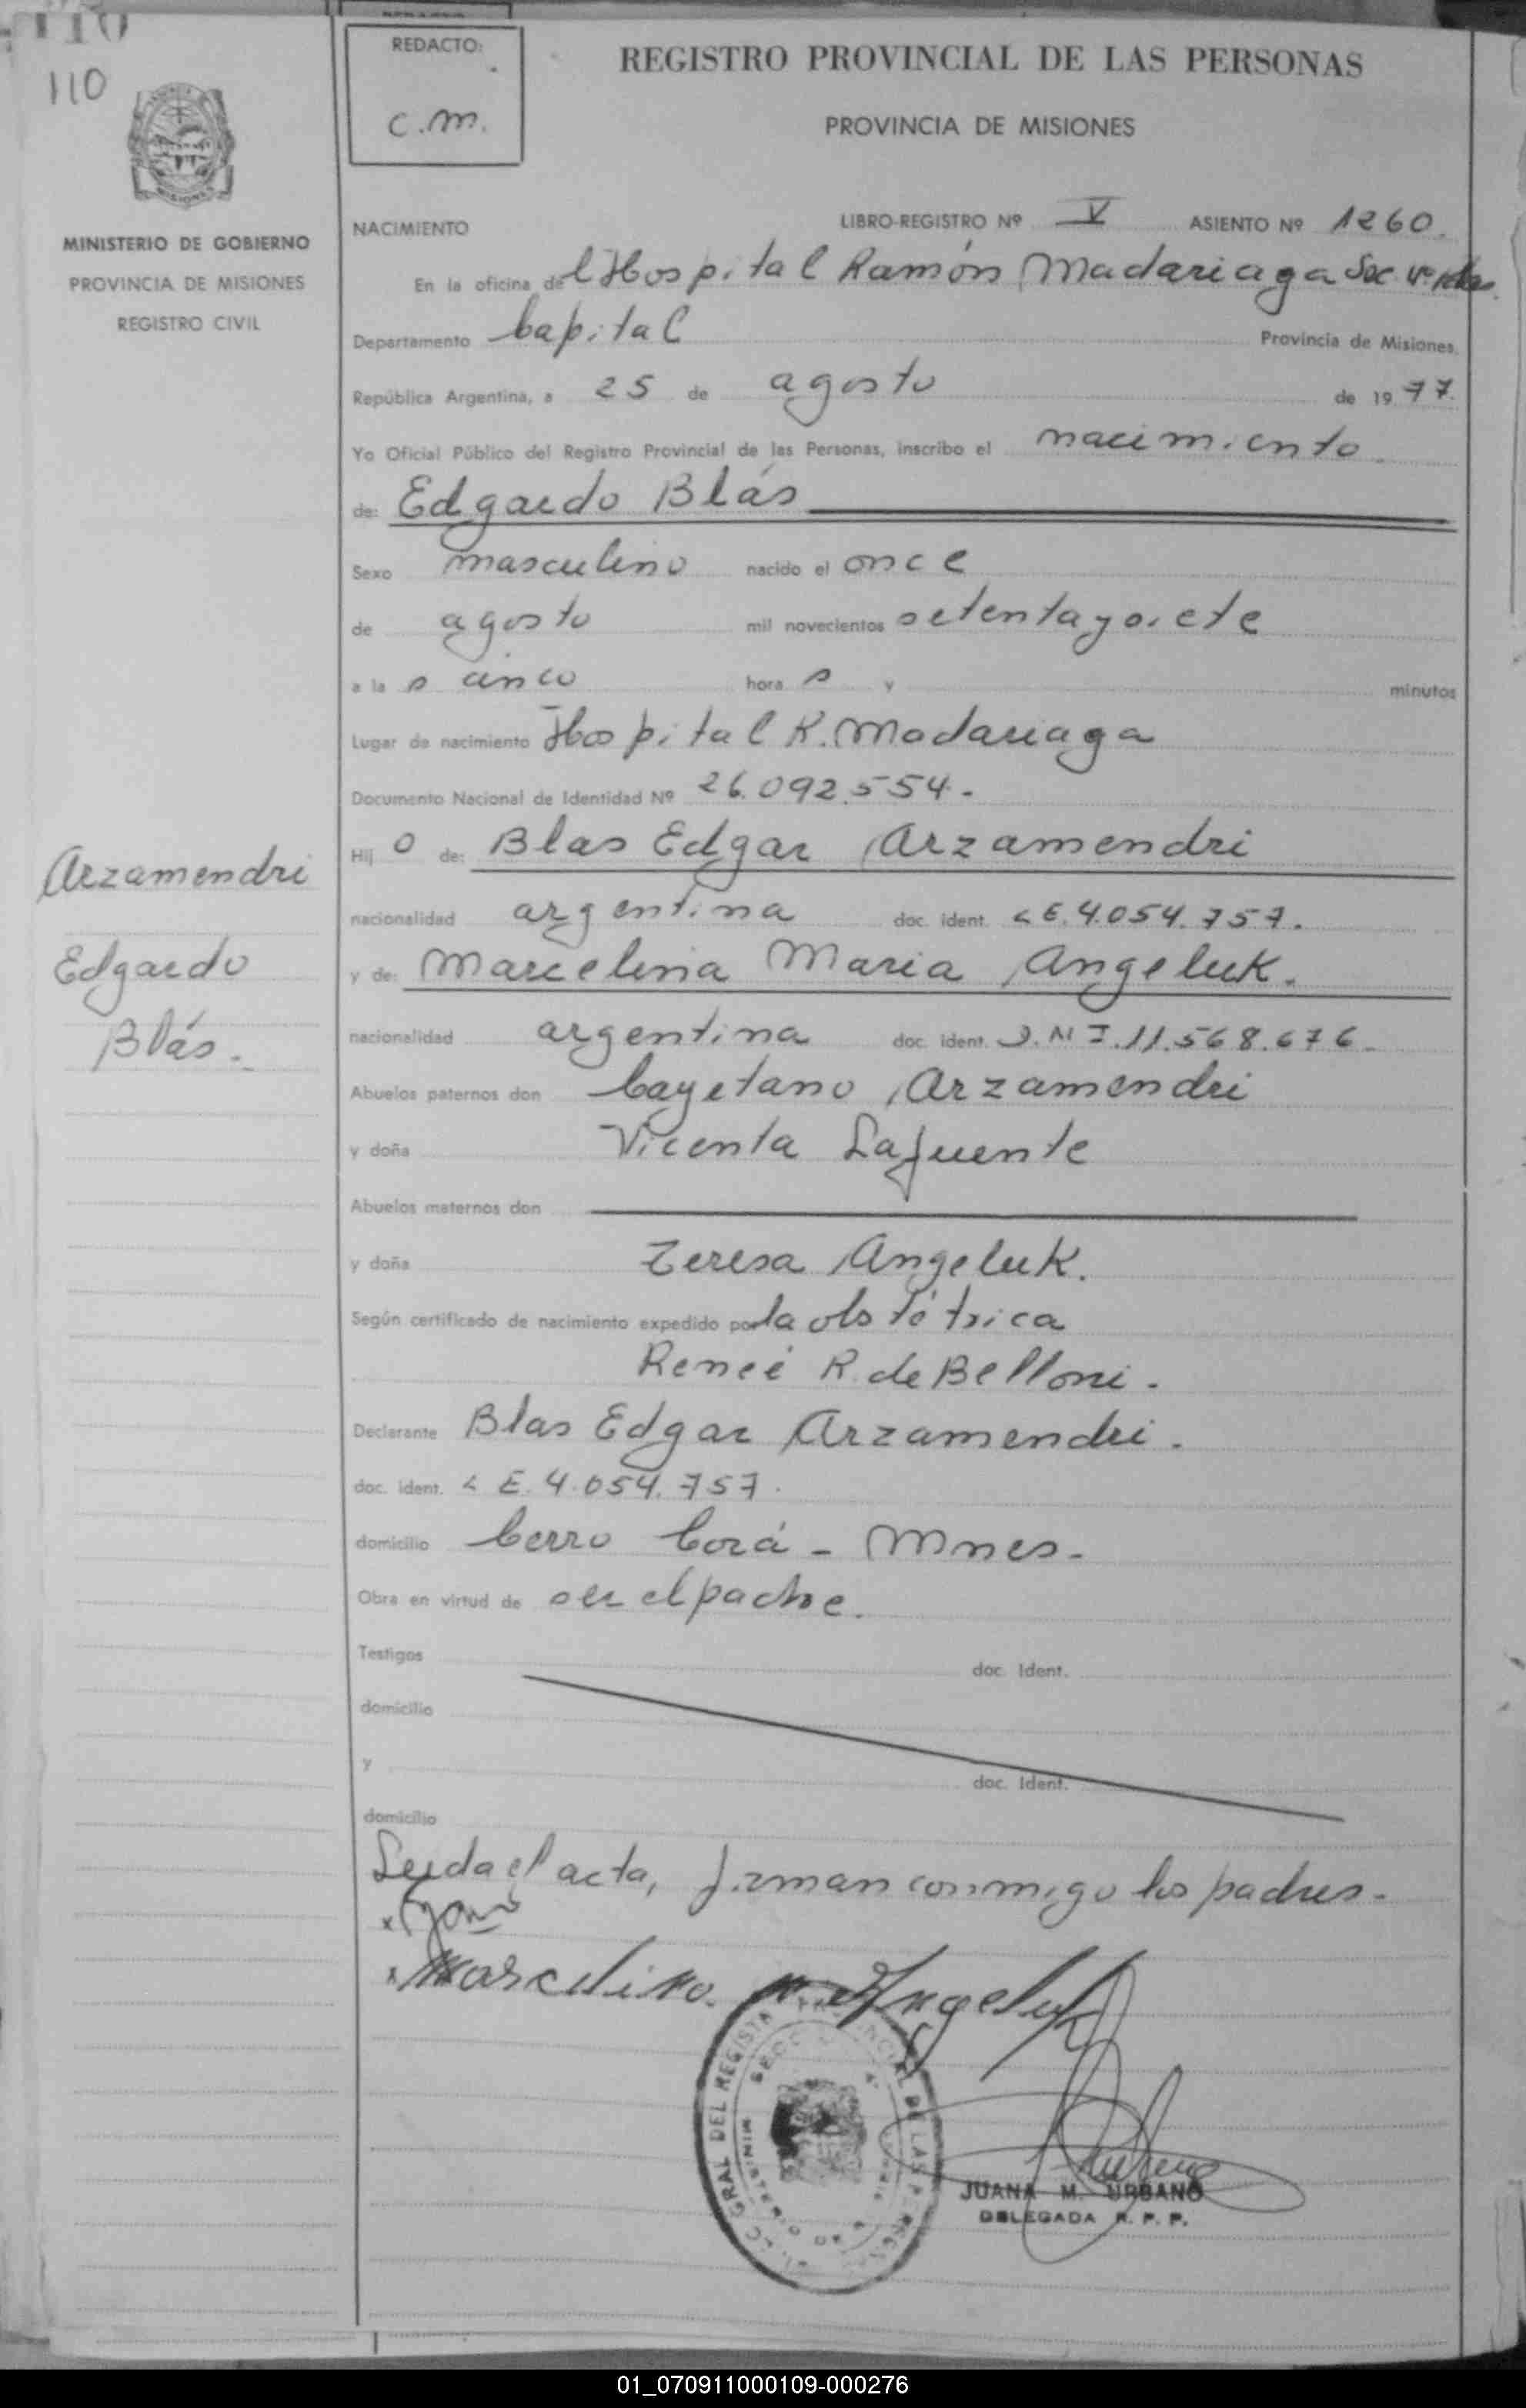 110
110
REDACTO:
C.M.
REGISTRO PROVINCIAL DE LAS PERSONAS
PROVINCIA DE MISIONES
MISIONES
MINISTERIO DE GOBIERNO
PROVINCIA DE MISIONES
REGISTRO CIVIL
NACIMIENTO LIBRO-REGISTRO Nº V ASIENTO Nº 1260.
En la oficina del Hospital Ramón Madariaga Sec.
Departamento Capital Provincia de Misiones.
República Argentina, a 25 de agosto de 1977.
Yo Oficial Público del Registro Provincial de las Personas, inscribo el nacimiento
de: Edgardo Blás
Sexo masculino nacido el once
de agosto mil novecientos setenta y siete
a las cinco horas y minutos
Lugar de nacimiento Hospital R. Madariaga
Documento Nacional de Identidad Nº 26.092.554.-
Hijo de: Blas Edgar Arzamendri
nacionalidad argentina doc. ident. L E. 4.054.757.
y de: Marcelina Maria Angeluk.
nacionalidad argentina doc. ident. D.N I. 11.568.676.
Abuelos paternos don Cayetano Arzamendri
y doña Vicenta Lafuente
Abuelos maternos don
y doña Teresa Angeluk.
Según certificado de nacimiento expedido por la obstétrica
Reneé R. de Belloni.
Declarante Blas Edgar Arzamendri.
doc. ident. L E. 4.054.757.
domicilio Cerro Corá - Mnes.
Obra en virtud de ser el padre.
Testigos doc. Ident.
domicilio
y doc. Ident.
domicilio
Leida el acta, firman conmigo los padres.
x
x Marcelina M Angeluk
JUANA M. URBANO
DELEGADA R. P. P.
Arzamendri
Edgardo
Blás.
01_070911000109-000276